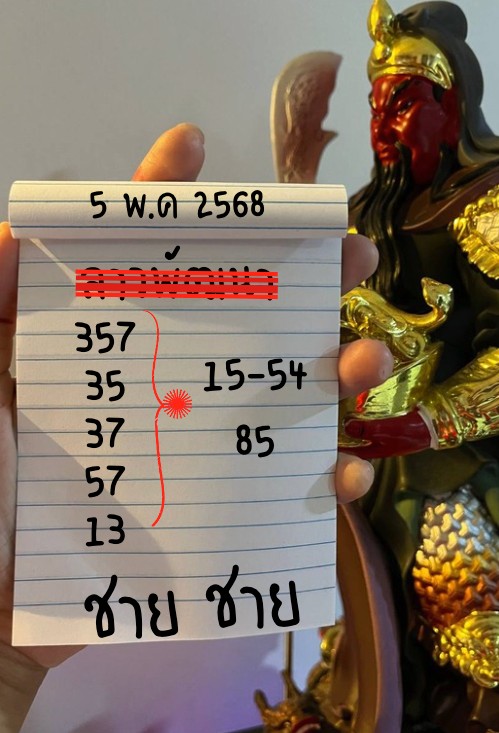 5 พ.ค 2568
ลาวพัฒนา
357
35
37
57
13
15-54
85
ชาย ชาย